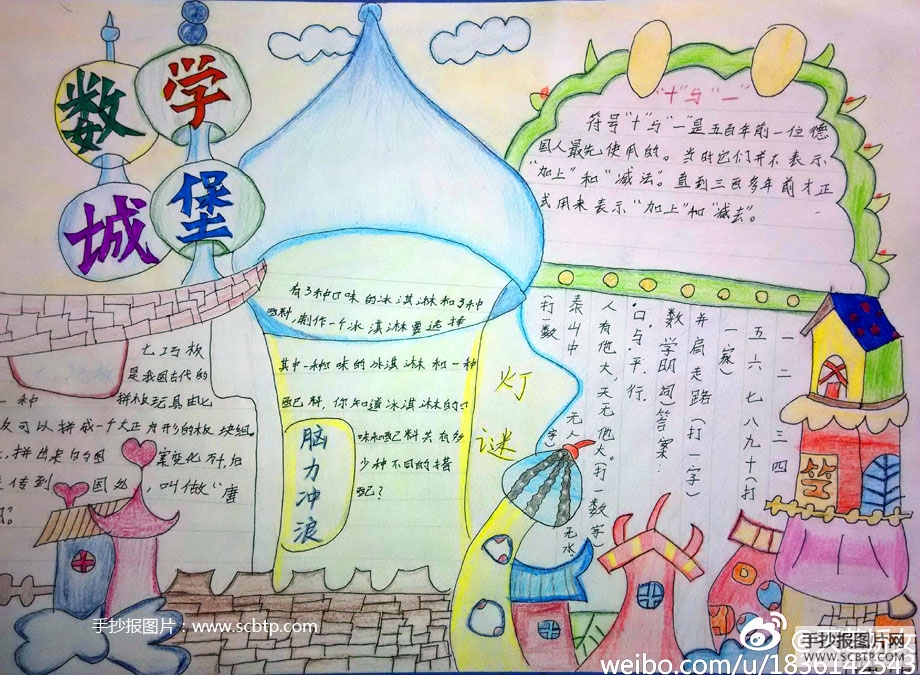 数学
城堡
"十"与"一"
符号"十"与"一"是五百年前一位德
国人最先使用的。当时它们并不表示
"加上"和"减法"。直到三百多年前才正
式用来表示"加上"和"减去"。
有3种口味的冰淇淋和3种
配料,制作一个冰淇淋要选择
其中一种口味的冰淇淋和一种
配料,你知道冰淇淋的口
味和配料共有多
少种不同的搭
配?
脑力冲浪
七巧板
是我国古代的
一种 拼板玩具由七
可以拼成一个大正方形的板块组
拼出来的图案变化万
传到国外,叫做"唐
灯谜
一二三四
五六七八九十(打
一字)
并肩走路(打一数
学名词)答案:
口与平行。
人有他大,天无他大。(打一数字)
泰山中无人无水
(打数字)
手抄报图片:www.scbtp.com
手抄报图片网
WWW.SCBTP.COM
weibo.com/u/1836142543